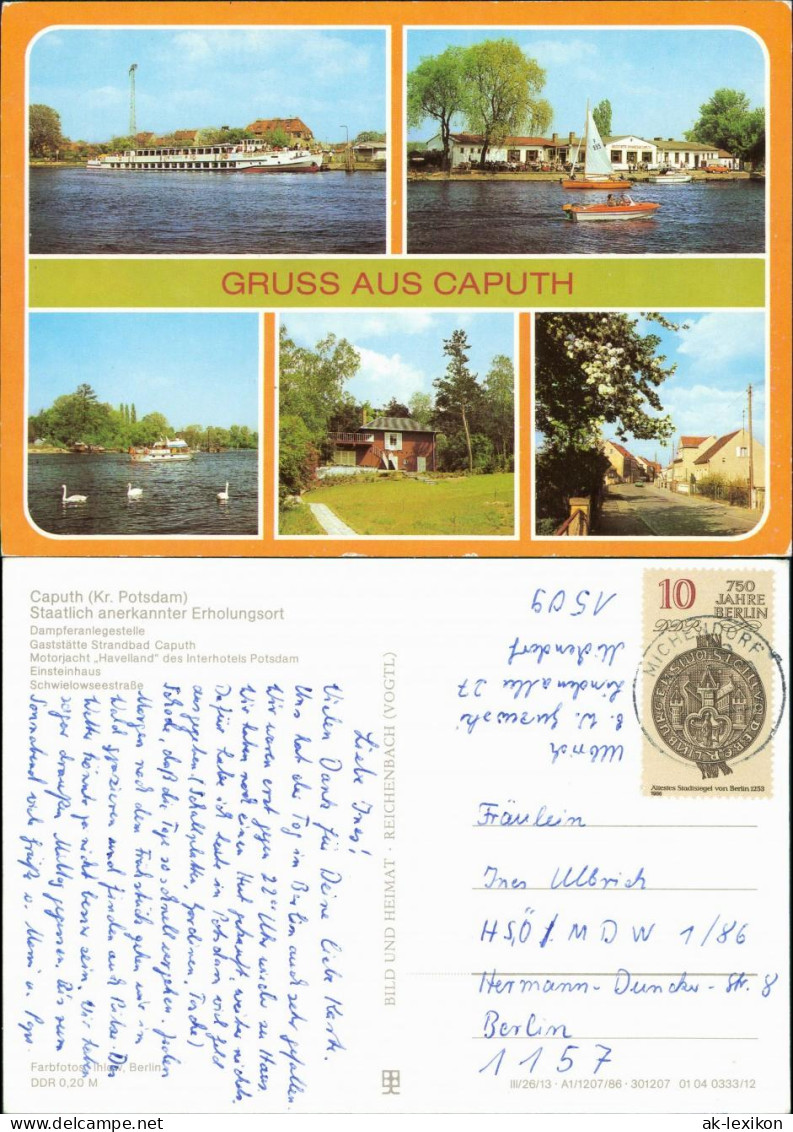 GRUSS AUS CAPUTH
Caputh (Kr. Potsdam)
Staatlich anerkannter Erholungsort
Dampferanlegestelle
Gaststätte Strandbad Caputh
Motorjacht „Havelland" des Interhotels Potsdam
Einsteinhaus
Schwielowseestraße
Liebe Ines!
Vielen Dank für Deine liebe Karte.
Uns hat der Tag in Berlin auch sehr gefallen.
Wir waren erst gegen 22⁰⁰ Uhr wieder zu Haus.
Wir haben noch einen Hut gekauft, weiter nichts.
Dafür habe ich heute in Potsdam viel Geld
ausgegeben (Schallplatten, Gardinen, Tasche)
Schade, daß die Tage so schnell vergehen. Jeden
Morgen nach dem Frühstück gehen wir im
Wald spazieren und finden auch Pilze. Das
Wetter könnte ja nicht besser sein. Wir haben
sogar draußen Mittag gegessen. Bis zum
Sonnabend viele Grüße v. Mami u. Papa
Farbfotos: Ihlow, Berlin
DDR 0,20 M
BILD UND HEIMAT · REICHENBACH (VOGTL)
Ulbrich
b. W.
Lindenallee 27
Michendorf
1509
10
750
JAHRE
BERLIN
MICHENDORF
Ältestes Stadtsiegel von Berlin 1253
1986
Fräulein
Ines Ulbrich
HSÖ / MDW 1/86
Hermann-Duncker-Str. 8
Berlin
1157
III/26/13 · A1/1207/86 · 301207 01 04 0333/12
ak-lexikon.com